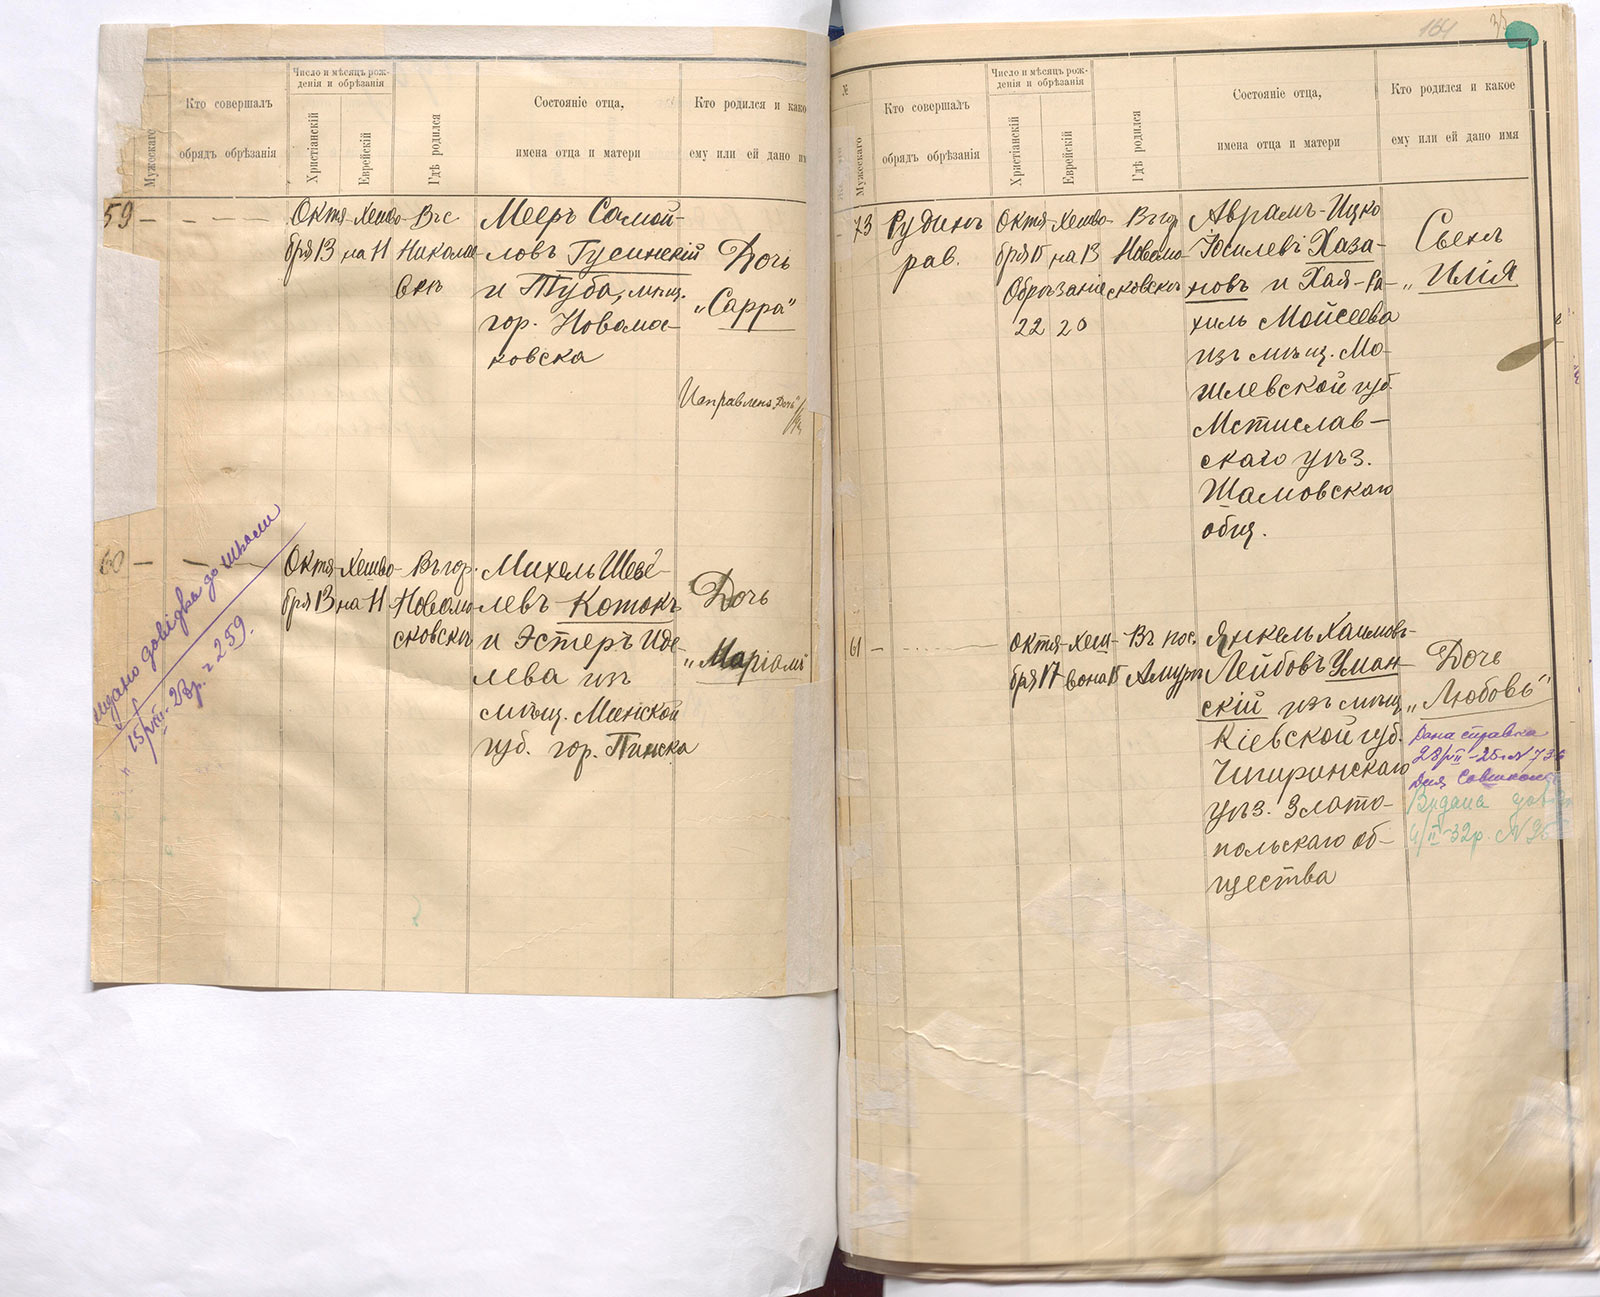 Мужескаго
Кто совершалъ
обрядъ обрѣзанія
Число и мѣсяцъ рож-
денія и обрѣзанія
Христіанскій
Еврейскій
Гдѣ родился
Состояніе отца,
имена отца и матери
Кто родился и како
ему или ей дано им
59 — — — — —
Октя-
бря 13
Хешво-
на 11
Въ с.
Николае
вкѣ
Мееръ Самой-
ловъ Гусинскій
и Туба, мѣщ.
гор. Новомос-
ковска
Дочь
„Сарра"
Исправлено „Дочь"
60 —
Октя-
бря 13
Хешво-
на 11
Въ гор.
Новомо-
сковскѣ
Михель Шеве-
левъ Котокъ
и Эстеръ Иде-
лева изъ
мѣщ. Минской
губ. гор. Пинска
Дочь
„Маріамъ"
видано довідка до школи
15/VIII-28р. ч 259.
164
№
Мужескаго
Кто совершалъ
обрядъ обрѣзанія
Число и мѣсяцъ рож-
денія и обрѣзанія
Христіанскій
Еврейскій
Гдѣ родился
Состояніе отца,
имена отца и матери
Кто родился и какое
ему или ей дано имя
73
Рудинъ
рав.
Октя-
бря 15
Обрѣзаніе
22
Хешво-
на 13
20
Въ гор.
Новомо-
сковскѣ
Аврамъ-Ицко
Іосилевъ Хаза-
новъ и Хая-Ра-
хиль Мойсеева
изъ мѣщ. Мо-
гилевской губ.
Мстислав-
скаго уѣз.
Шамовскаго
общ.
Сынъ
„Илія
61 —
Октя-
бря 17
Хеш-
вона 15
Въ пос.
Амурѣ
Янкель Хаимовъ-
Лейбовъ Уман-
скій изъ мѣщ.
Кіевской губ.
Чигиринскаго
уѣз. Злато-
польскаго об-
щества
Дочь
„Любовь"
Дана справка
28/VII-25 г. N 736
Видана
4/II-32р. N